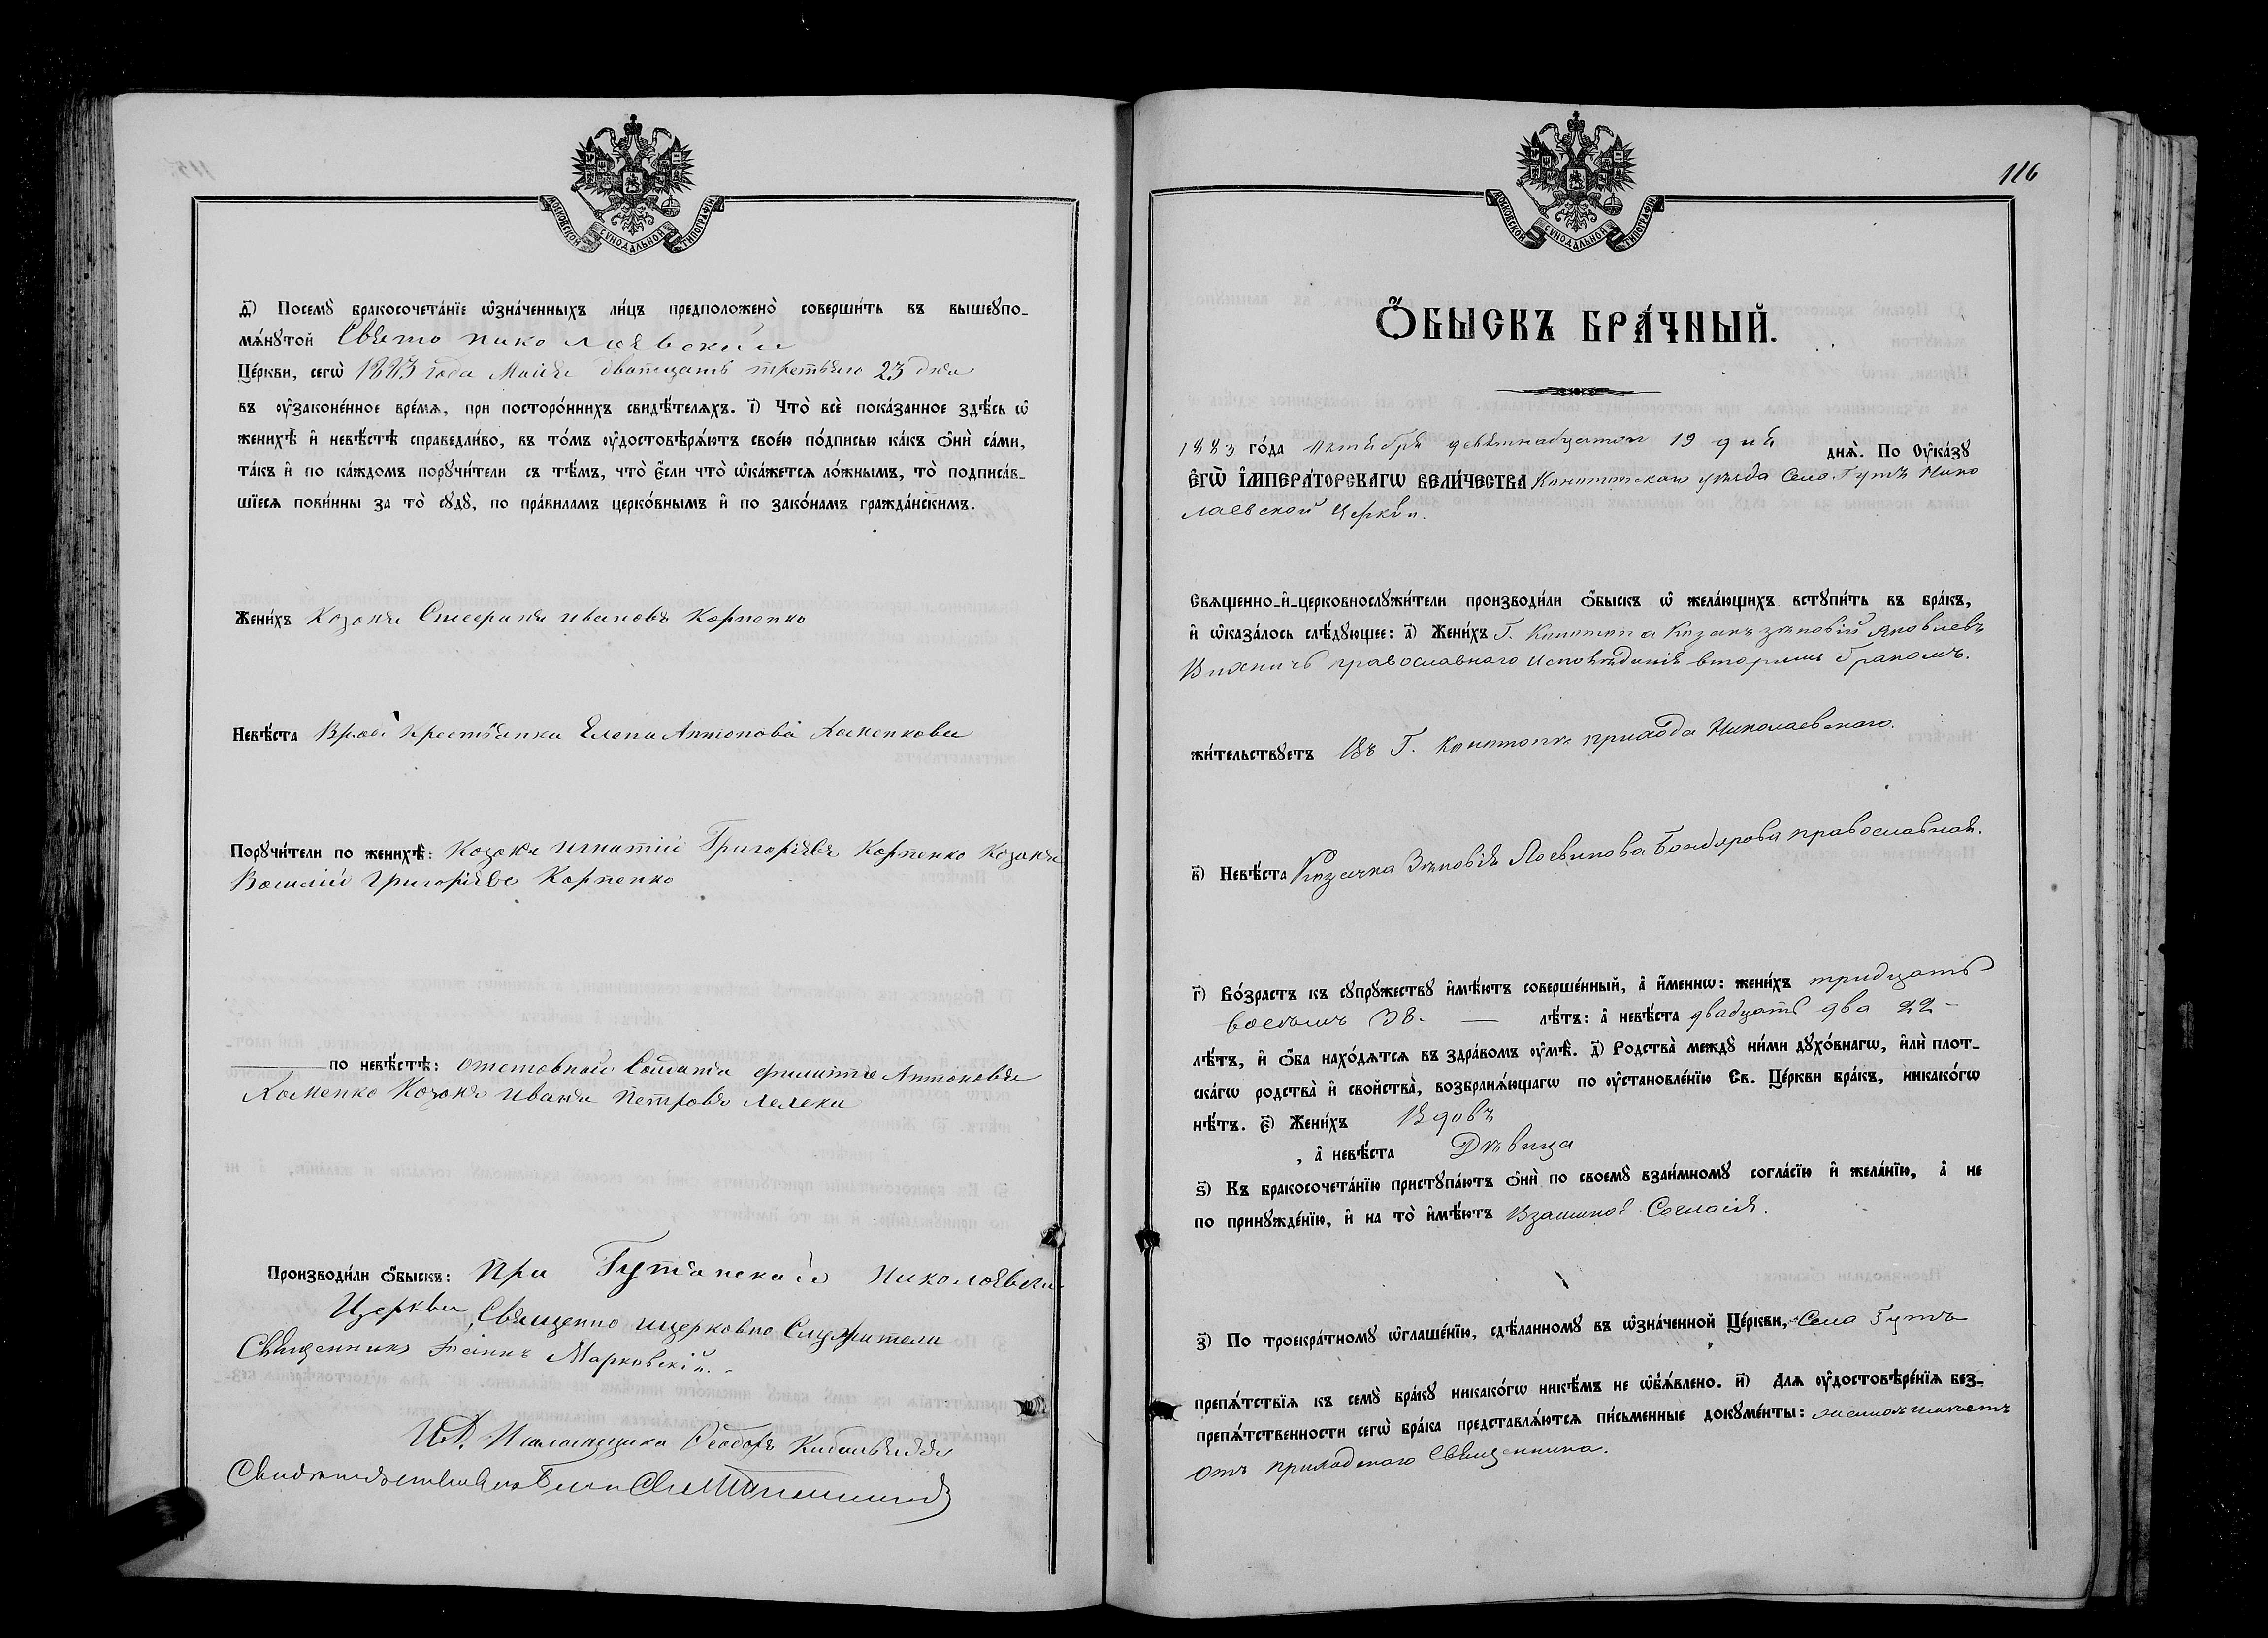 МОСКОВСКОЙ СѴНОДАЛЬНОЙ ТИПОГРАФІИ
д҃) Посемꙋ̀ бракосочета́нїе ѡ҆зна́ченныхъ ли́цъ предположено̀ соверши́ть въ вышеꙋпо-
мѧ́нꙋтой Свято Николаевской
Це́ркви, сегѡ̀ 1883 года дватцать третьяго 23 дня
въ ᲂу҆законе́нное вре́мѧ, при посторо́ннихъ свидѣ́телѧхъ. і҃) Что̀ всѐ пока́занное здѣ́сь ѡ҆
женихѣ̀ и҆ невѣ́стѣ справедли́во, въ то́мъ ᲂу҆достовѣрѧ́ютъ свое́ю по́дписью ка́къ ѻ҆нѝ са́ми,
та́къ и҆ по ка́ждомъ порꙋчи́тели съ тѣ́мъ, что̀ є҆́сли что̀ ѡ҆ка́жетсѧ ло́жнымъ, то̀ подписа́в-
шїесѧ пови́нны за то̀ сꙋдꙋ̀, по пра́виламъ церко́внымъ и҆ по зако́намъ гражда́нскимъ.
Жени́хъ Козакъ Стефанъ Ивановъ Карпенко
Невѣ́ста Крестьянка Елена Антонова Хоменкова
Порꙋчи́тели по женихѣ̀: Козакъ Игнатій Григорьевъ Карпенко Козакъ
Василій Григорьевъ Карпенко
по невѣ́стѣ: отставной Солдатъ Филиппъ Антоновъ
Хоменко Козакъ Иванъ Петровъ Лелека
Производи́ли ѻ҆́быскъ: При Гутянской Николаевской
Церкви Священно ицерковно Служители
Священникъ Іоаннъ Марковскій.
И.Д. Псаломщика Ѳеодоръ
116
МОСКОВСКОЙ СѴНОДАЛЬНОЙ ТИПОГРАФІИ
Ѻ҆́БЫСКЪ БРА́ЧНЫЙ.
1883 го́да Октября девятнадцатого 19 дня днѧ̀. По Оу҆ка́зꙋ
Є҆ГѠ̀ І҆МПЕРА́ТОРСКАГѠ ВЕЛИ́ЧЕСТВА Конотопскаго уѣзда Села Гутъ Нико
лаевской Церкви.
Свѧщенно-и҆-церковнослꙋжи́тели производи́ли ѻ҆́быскъ ѡ҆ жела́ющихъ встꙋпи́ть въ бра́къ,
и҆ ѡ҆каза́лось слѣ́дꙋющее: а҃) Жени́хъ Г. Конотопа Козакъ Зѣновій Яковлевъ
православнаго исповѣданія вторымъ бракомъ.
жи́тельствꙋетъ Въ Г. Конотопѣ прихода Николаевскаго.
в҃) Невѣ́ста Козачка Зѣновія Логвинова Бондарова православная.
г҃) Во́зрастъ къ сꙋпрꙋ́жествꙋ и҆мѣ́ютъ соверше́нный, а҆ и҆́меннѡ: жени́хъ тридцать
восемъ 38. — лѣ́тъ: а҆ невѣ́ста двадцать два 22 —
лѣ́тъ, и҆ ѻ҆́ба нахо́дѧтсѧ въ здра́вомъ ᲂу҆мѣ̀. д҃) Родства̀ междꙋ̀ ни́ми дꙋхо́внагѡ, и҆лѝ плот-
ска́гѡ родства̀ и҆ свойства̀, возбранѧ́ющагѡ по ᲂу҆становле́нїю Св. Це́ркви бра́къ, никако́гѡ
нѣ́тъ. є҃) Жени́хъ Вдовъ
, а҆ невѣ́ста Дѣвица
ѕ҃) Къ бракосочета́нїю пристꙋпа́ютъ ѻ҆нѝ по своемꙋ̀ взаи́мномꙋ согла́сїю и҆ жела́нїю, а҆ не
по принꙋжде́нїю, и҆ на то̀ и҆мѣ́ютъ Взаимное Согласія.
з҃) По троекра́тномꙋ ѡ҆глаше́нїю, сдѣ́ланномꙋ въ ѡ҆зна́ченной Це́ркви, Села Гутъ
препѧ́тствїѧ къ семꙋ̀ бра́кꙋ никако́гѡ никѣ́мъ не ѡ҆б̾ѧ́влено. и҃) Длѧ ᲂу҆достовѣре́нїѧ без-
препѧ́тственности сегѡ̀ бра́ка представлѧ́ютсѧ пи́сьменные докꙋме́нты:
отъ приходскаго Священника.